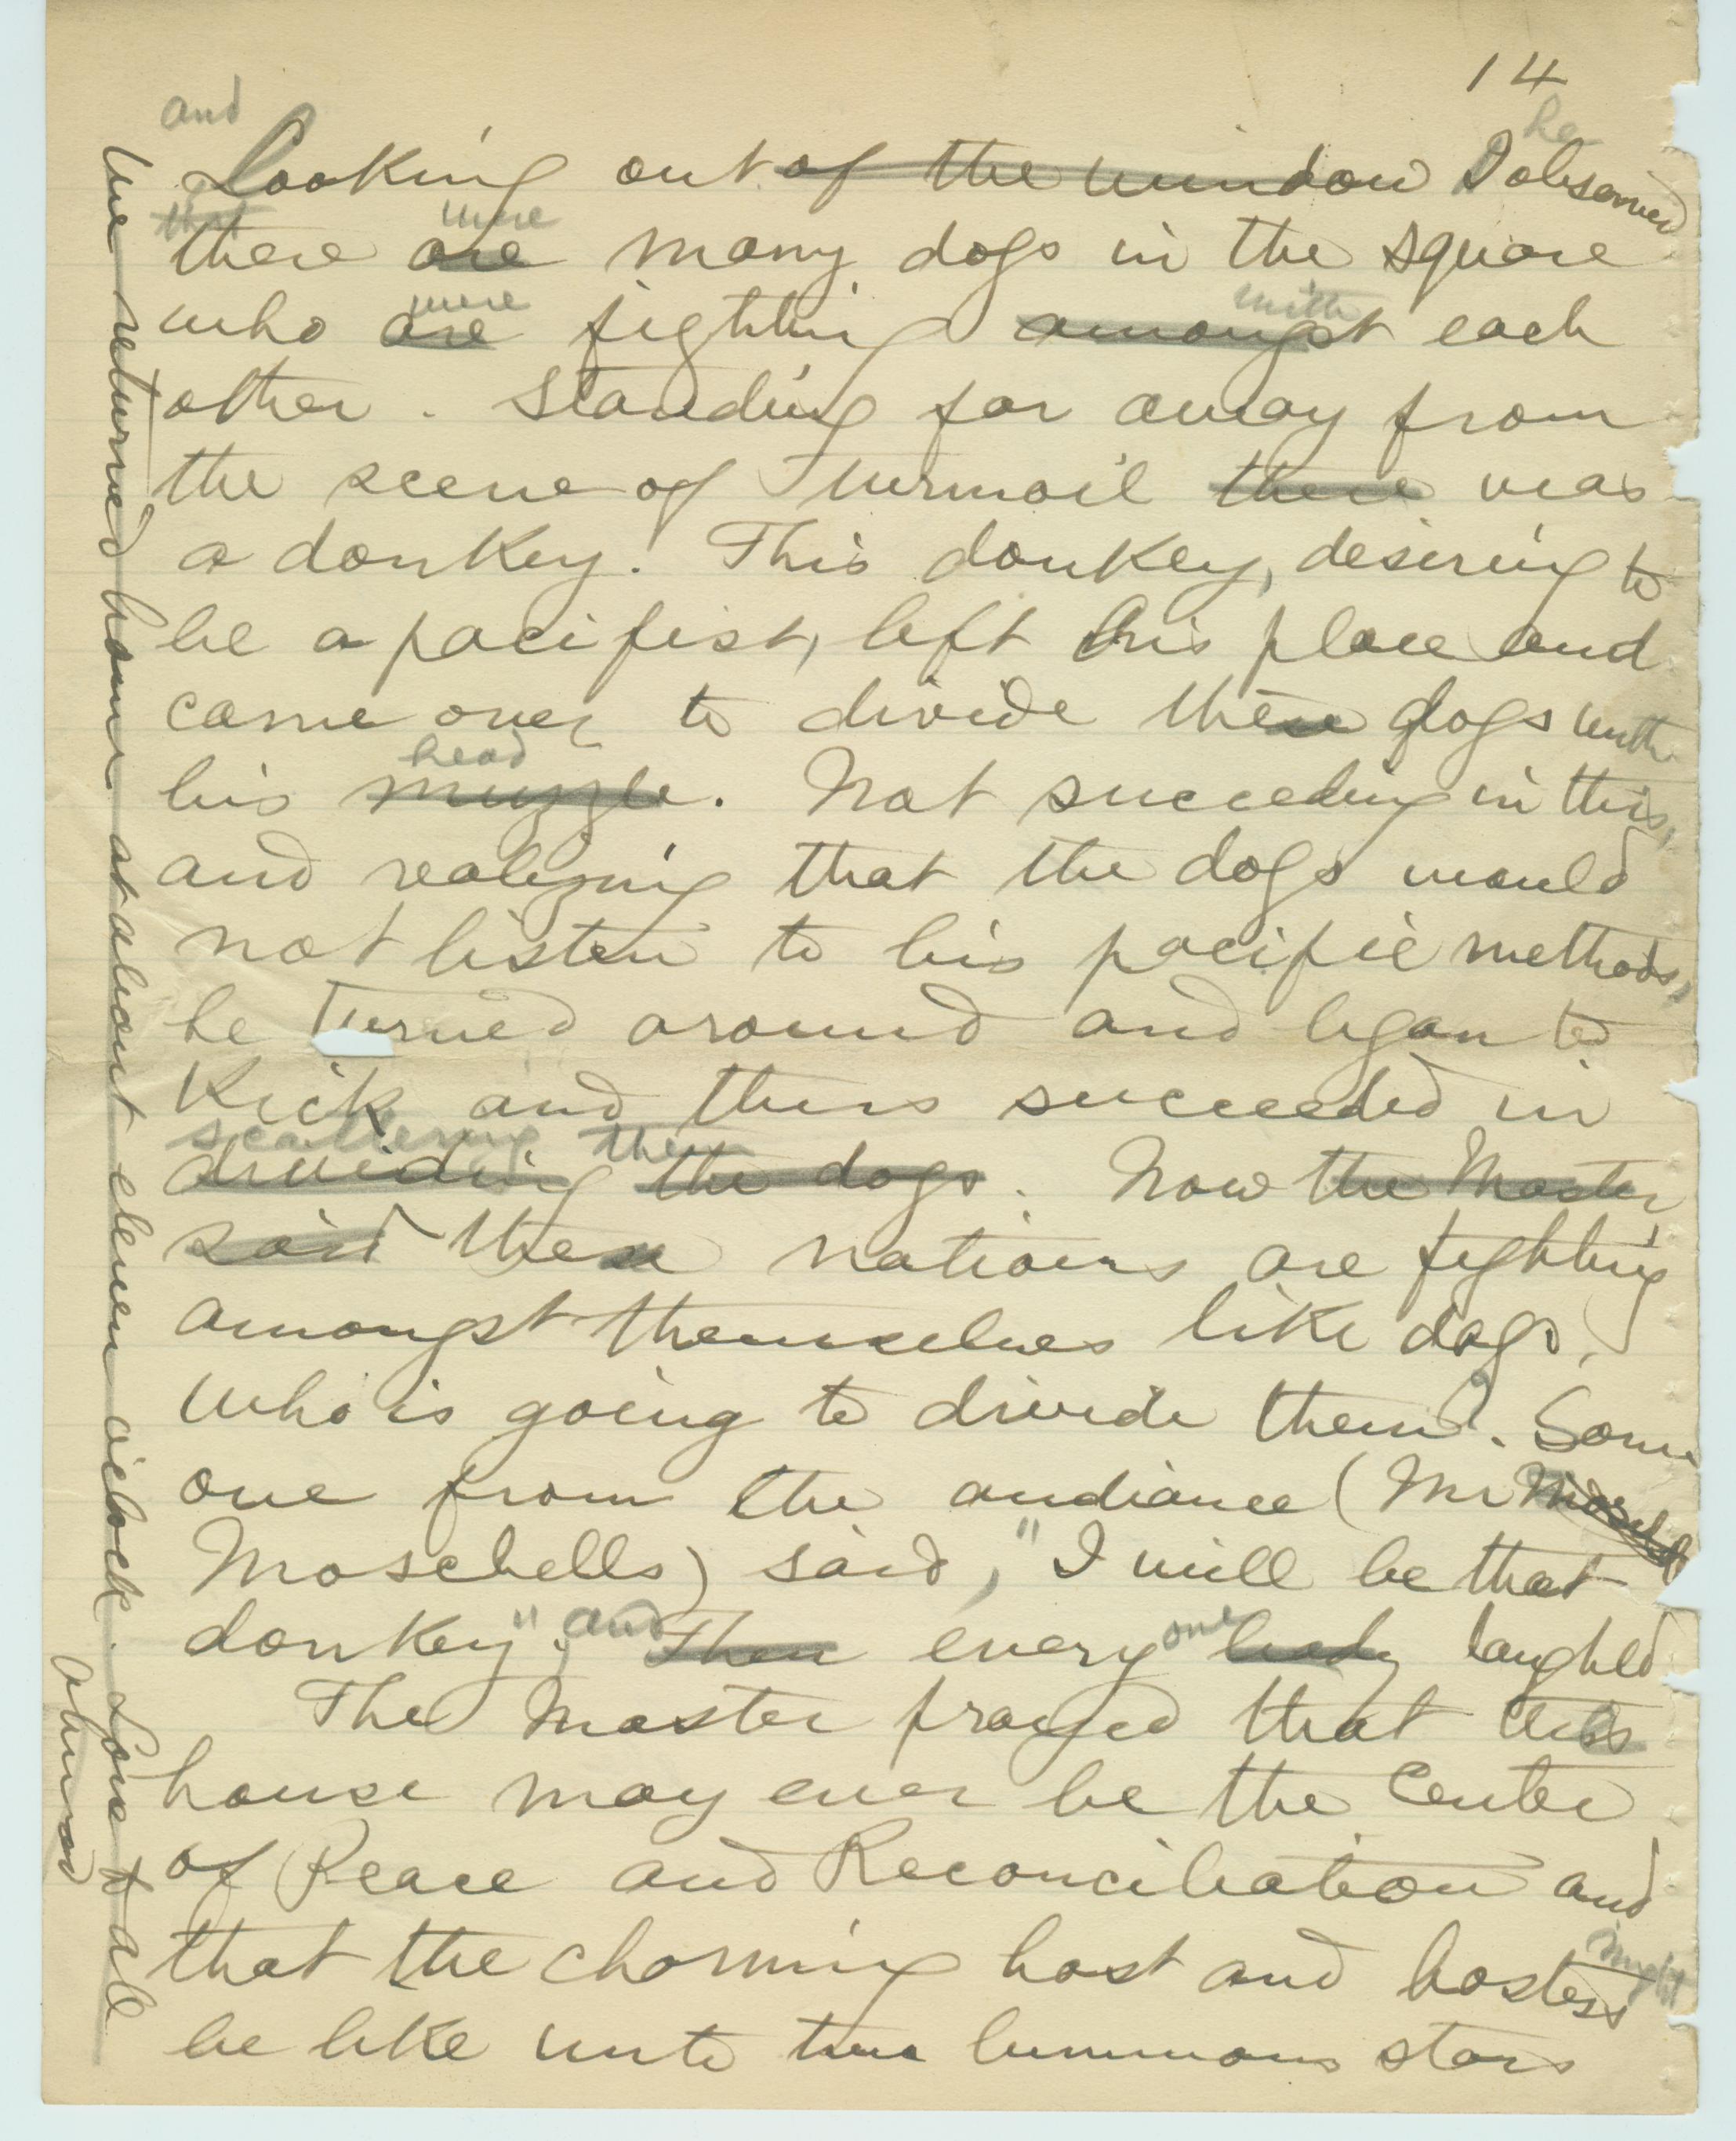 14
and he
Looking out of the window I observed
that were
there are many dogs in the square
were with
who are fighting amongst each
other. Standing far away from
the scene of Turmoil there was
a donkey. This donkey, desiring to
be a pacifist, left his place and
came over to divide these dogs with
head
his muzzle. Not succeding in this,
and realizing that the dogs would
not listen to his pacific methods,
he turned around and began to
Kick and thus succeeded in
scattering them
dividing the dogs. Now the Master
said these nations are fighting
amongst themselves like dogs.
Who is going to divide them? Some
one from the audiance (Mr
Moschells) said, "I will be that
and one
donkey"; Then every body laughed
The Master prayed that this
house may ever be the Center
of Peace and Reconciliation and
might
that the charming host and hostess
be like unto two luminous stars
We returned home at about eleven o'clock. Love to all
Ahmad